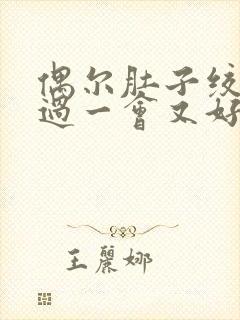 偶尔肚子绞
过一會又好
王麗娜